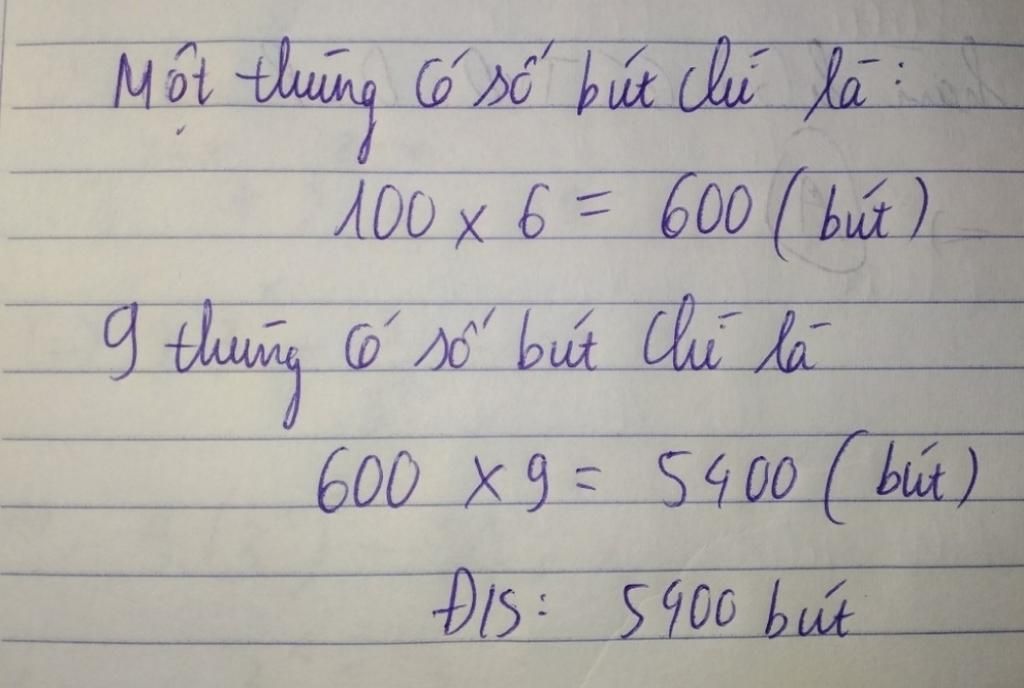 Một thùng có số bút chì là:
100 x 6 = 600 (bút)
9 thùng có số bút chì là
600 x 9 = 5400 (bút)
Đ/S: 5400 bút